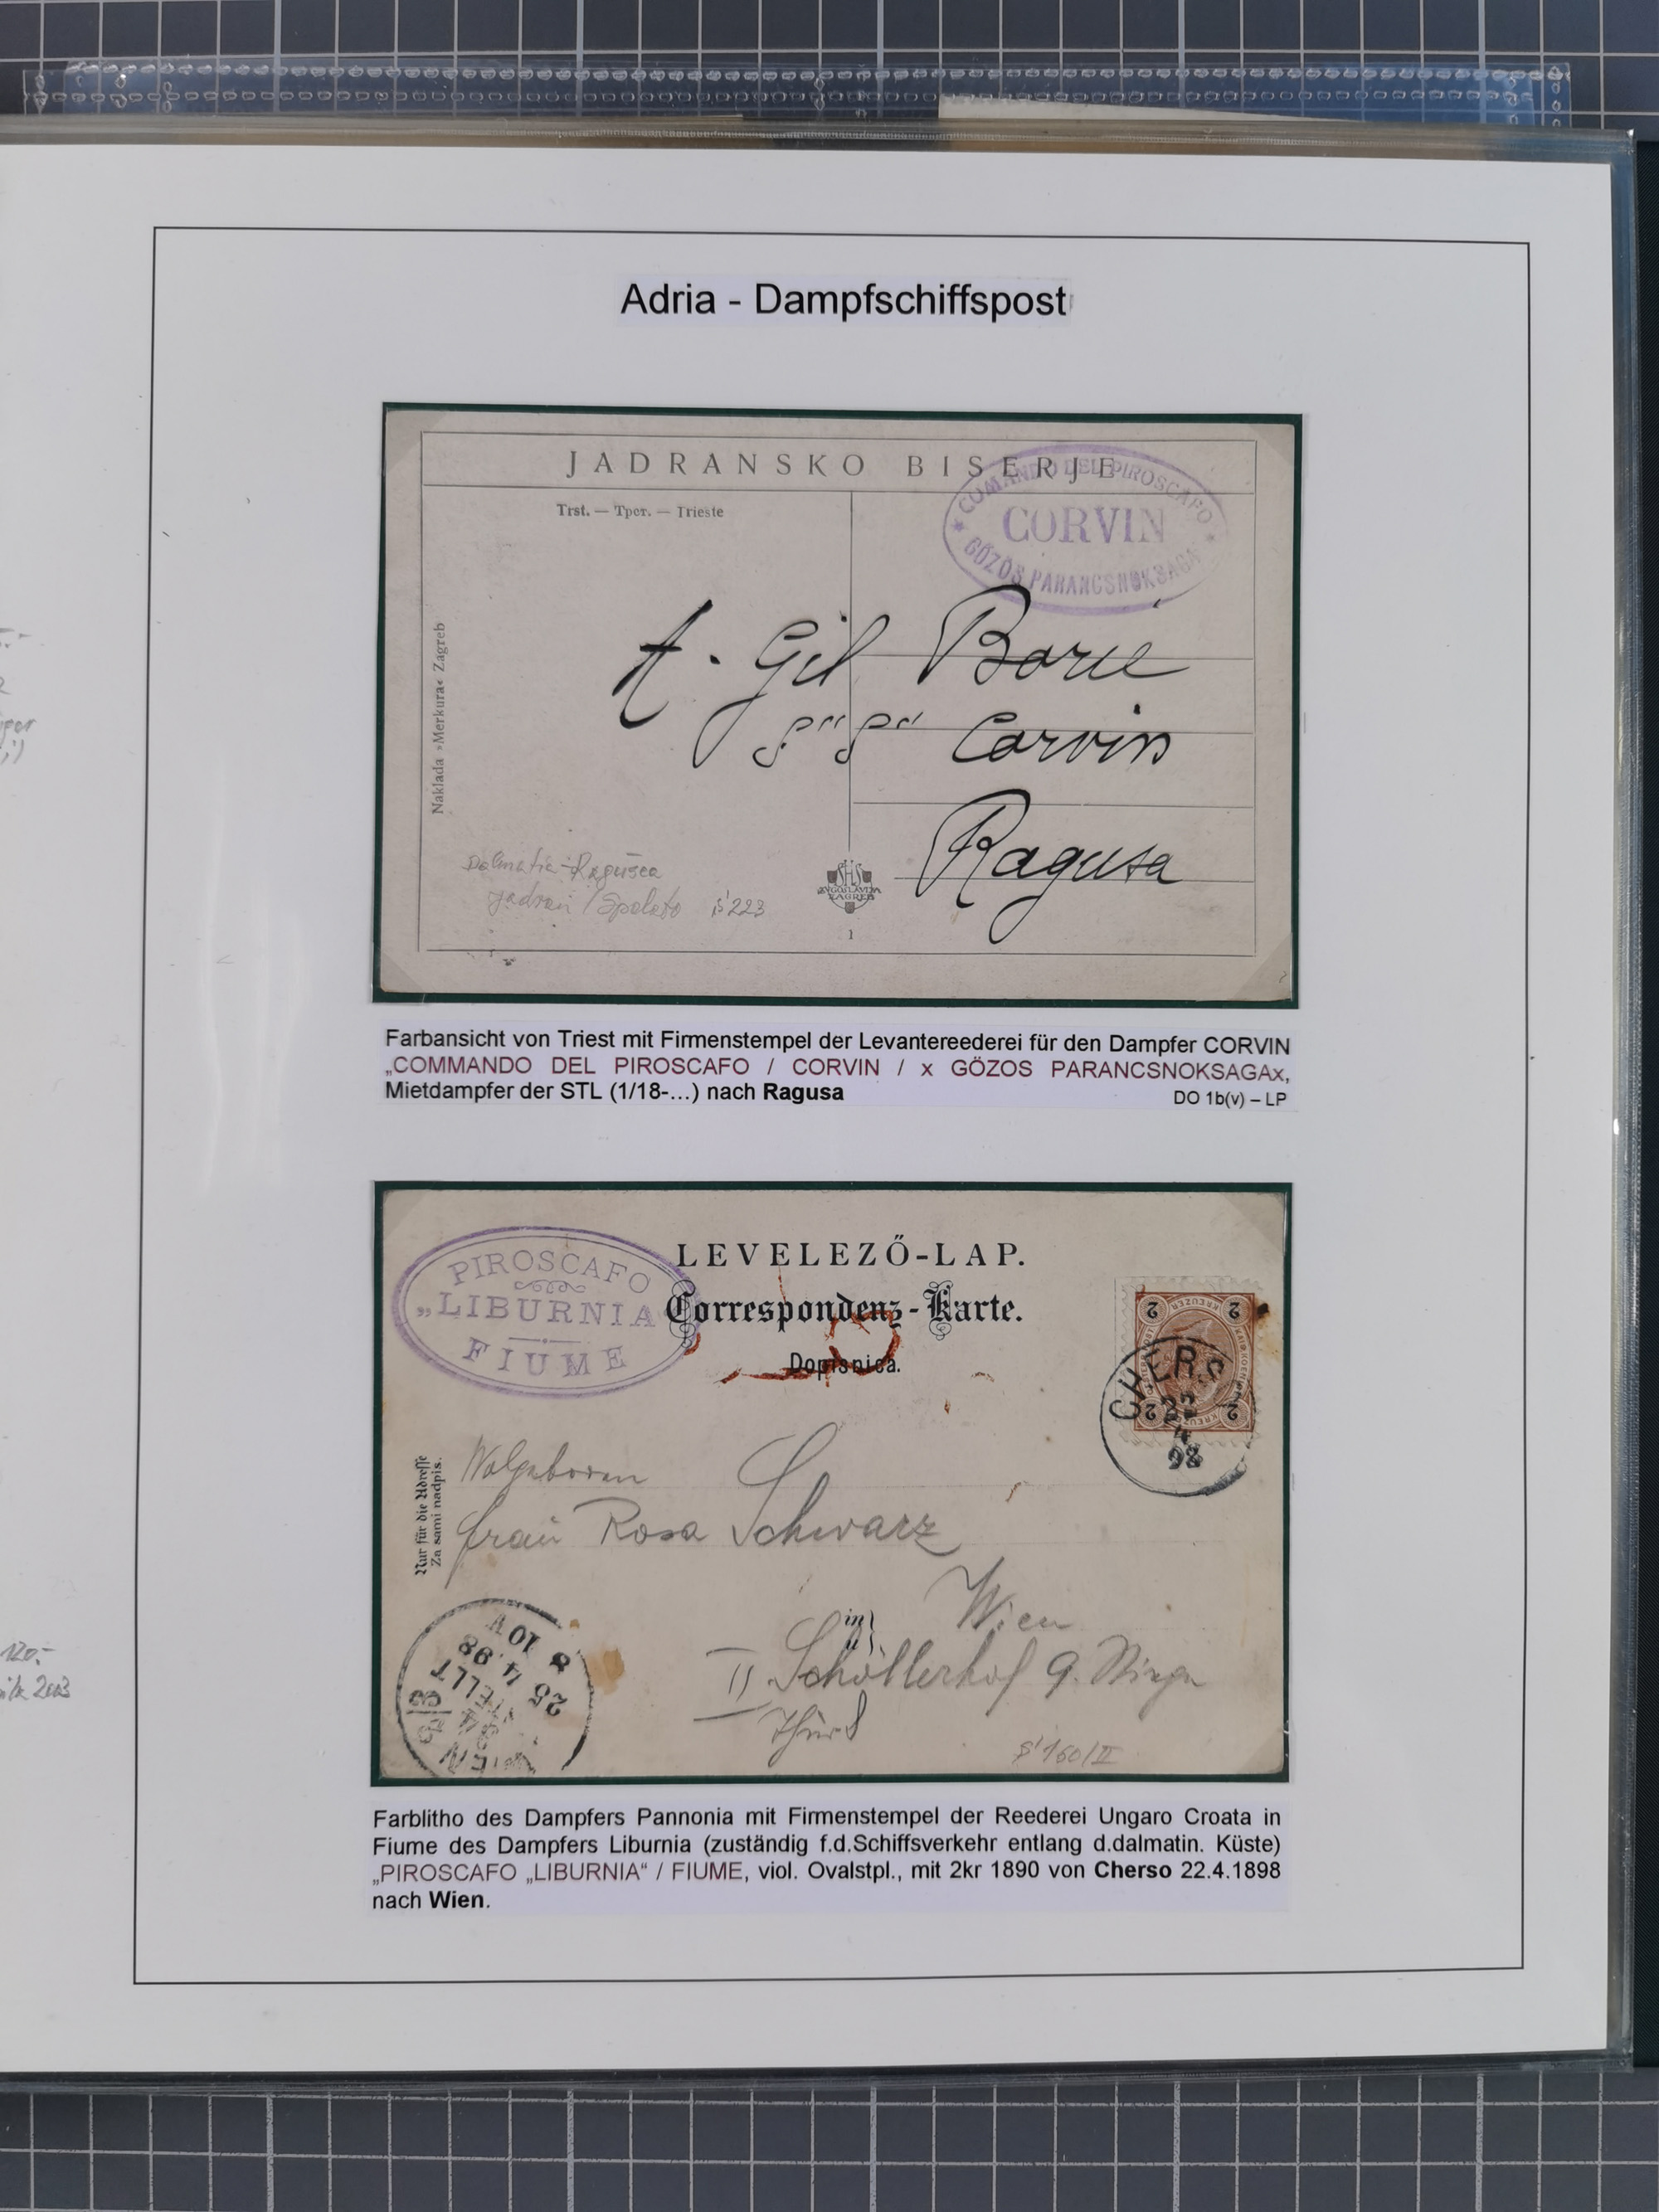 Adria - Dampfschiffspost
JADRANSKO BISERJE
Trst. — Трст. — Trieste
COMANDO DEL PIROSCAFO
CORVIN
GŐZÖS PARANCSNOKSAGA
Naklada »Merkura« Zagreb
A. Gil Borie
S" S" Corvin
Ragusa
Dalmatia-Ragusea
Jadran / Spalato
SHS
JUGOSLAVIJA
ZAGREB
1
Farbansicht von Triest mit Firmenstempel der Levantereederei für den Dampfer CORVIN
„COMMANDO DEL PIROSCAFO / CORVIN / x GÖZOS PARANCSNOKSAGAx,
Mietdampfer der STL (1/18-...) nach Ragusa
DO 1b(v) – LP
PIROSCAFO
„LIBURNIA
FIUME
LEVELEZŐ-LAP.
Correspondenz-Karte.
Dopisnica.
2 2
KREUZER
2 2
CHERSO
22
4
98
Nur für die Adresse
Za sami nadpis.
Frau Rosa Schwarz
in
u
Wien
II Schöllerhof 9.
WIEN
BESTELLT
25 4.98
8 10V
S'160/II
Farblitho des Dampfers Pannonia mit Firmenstempel der Reederei Ungaro Croata in
Fiume des Dampfers Liburnia (zuständig f.d.Schiffsverkehr entlang d.dalmatin. Küste)
„PIROSCAFO „LIBURNIA“ / FIUME, viol. Ovalstpl., mit 2kr 1890 von Cherso 22.4.1898
nach Wien.
120.-